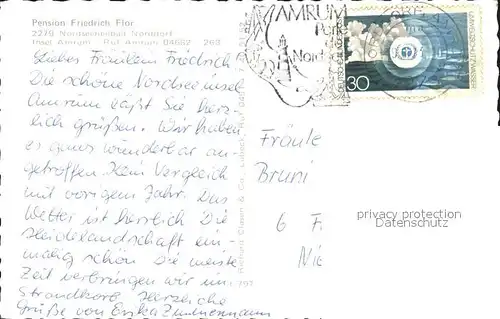 Pension Friedrich Flor
2279 Nordseeheilbad Norddorf
Insel Amrum Ruf Amrum 04682
Liebes Fräulein Friedrich
Die schöne Nordseeinsel
Amrum läßt Sie herz-
lich grüßen. Wir haben
es ganz wunderbar an-
getroffen. Kein Vergleich
mit vorigem Jahr. Das
Wetter ist herrlich Die
Heidelandschaft ein-
malig schön Die meiste
Zeit verbringen wir im
Strandkorb Herzliche
Grüße von Erika Zimmermann
AMRUM
Perle
der
Nord
30
Fräule
Bruni
6 F
Nie
privacy protection
Datenschutz